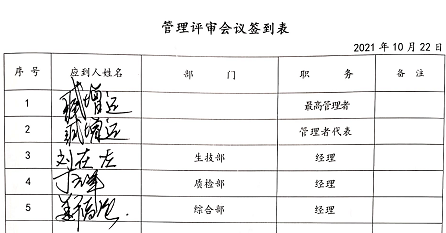 管理评审会议签到表
2021 年 10 月 22 日
序 号 应到人姓名 部 门 职 务 备 注
1 最高管理者
2 管理者代表
3 刘在左 生技部 经理
4 质检部 经理
5 综合部 经理